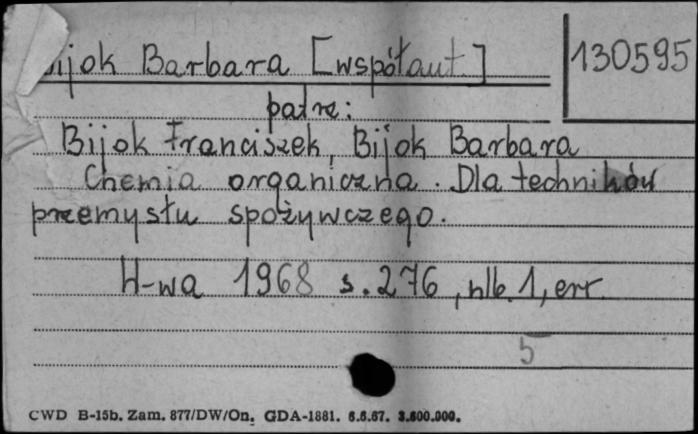 Bijok Barbara [współaut.]
130595
patrz:
Bijok Franciszek, Bijok Barbara
Chemia organiczna. Dla techników
przemysłu spożywczego.
W-wa 1968 s. 276, nlb. 1, err.
5
CWD B-15b. Zam. 877/DW/On. GDA-1881. 6.6.67. 3.600.000.